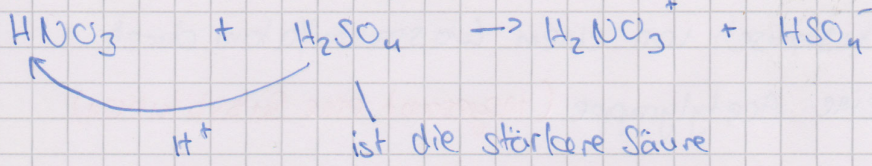 HNO₃ + H₂SO₄ → H₂NO₃⁺ + HSO₄⁻
H⁺
ist die stärkere Säure